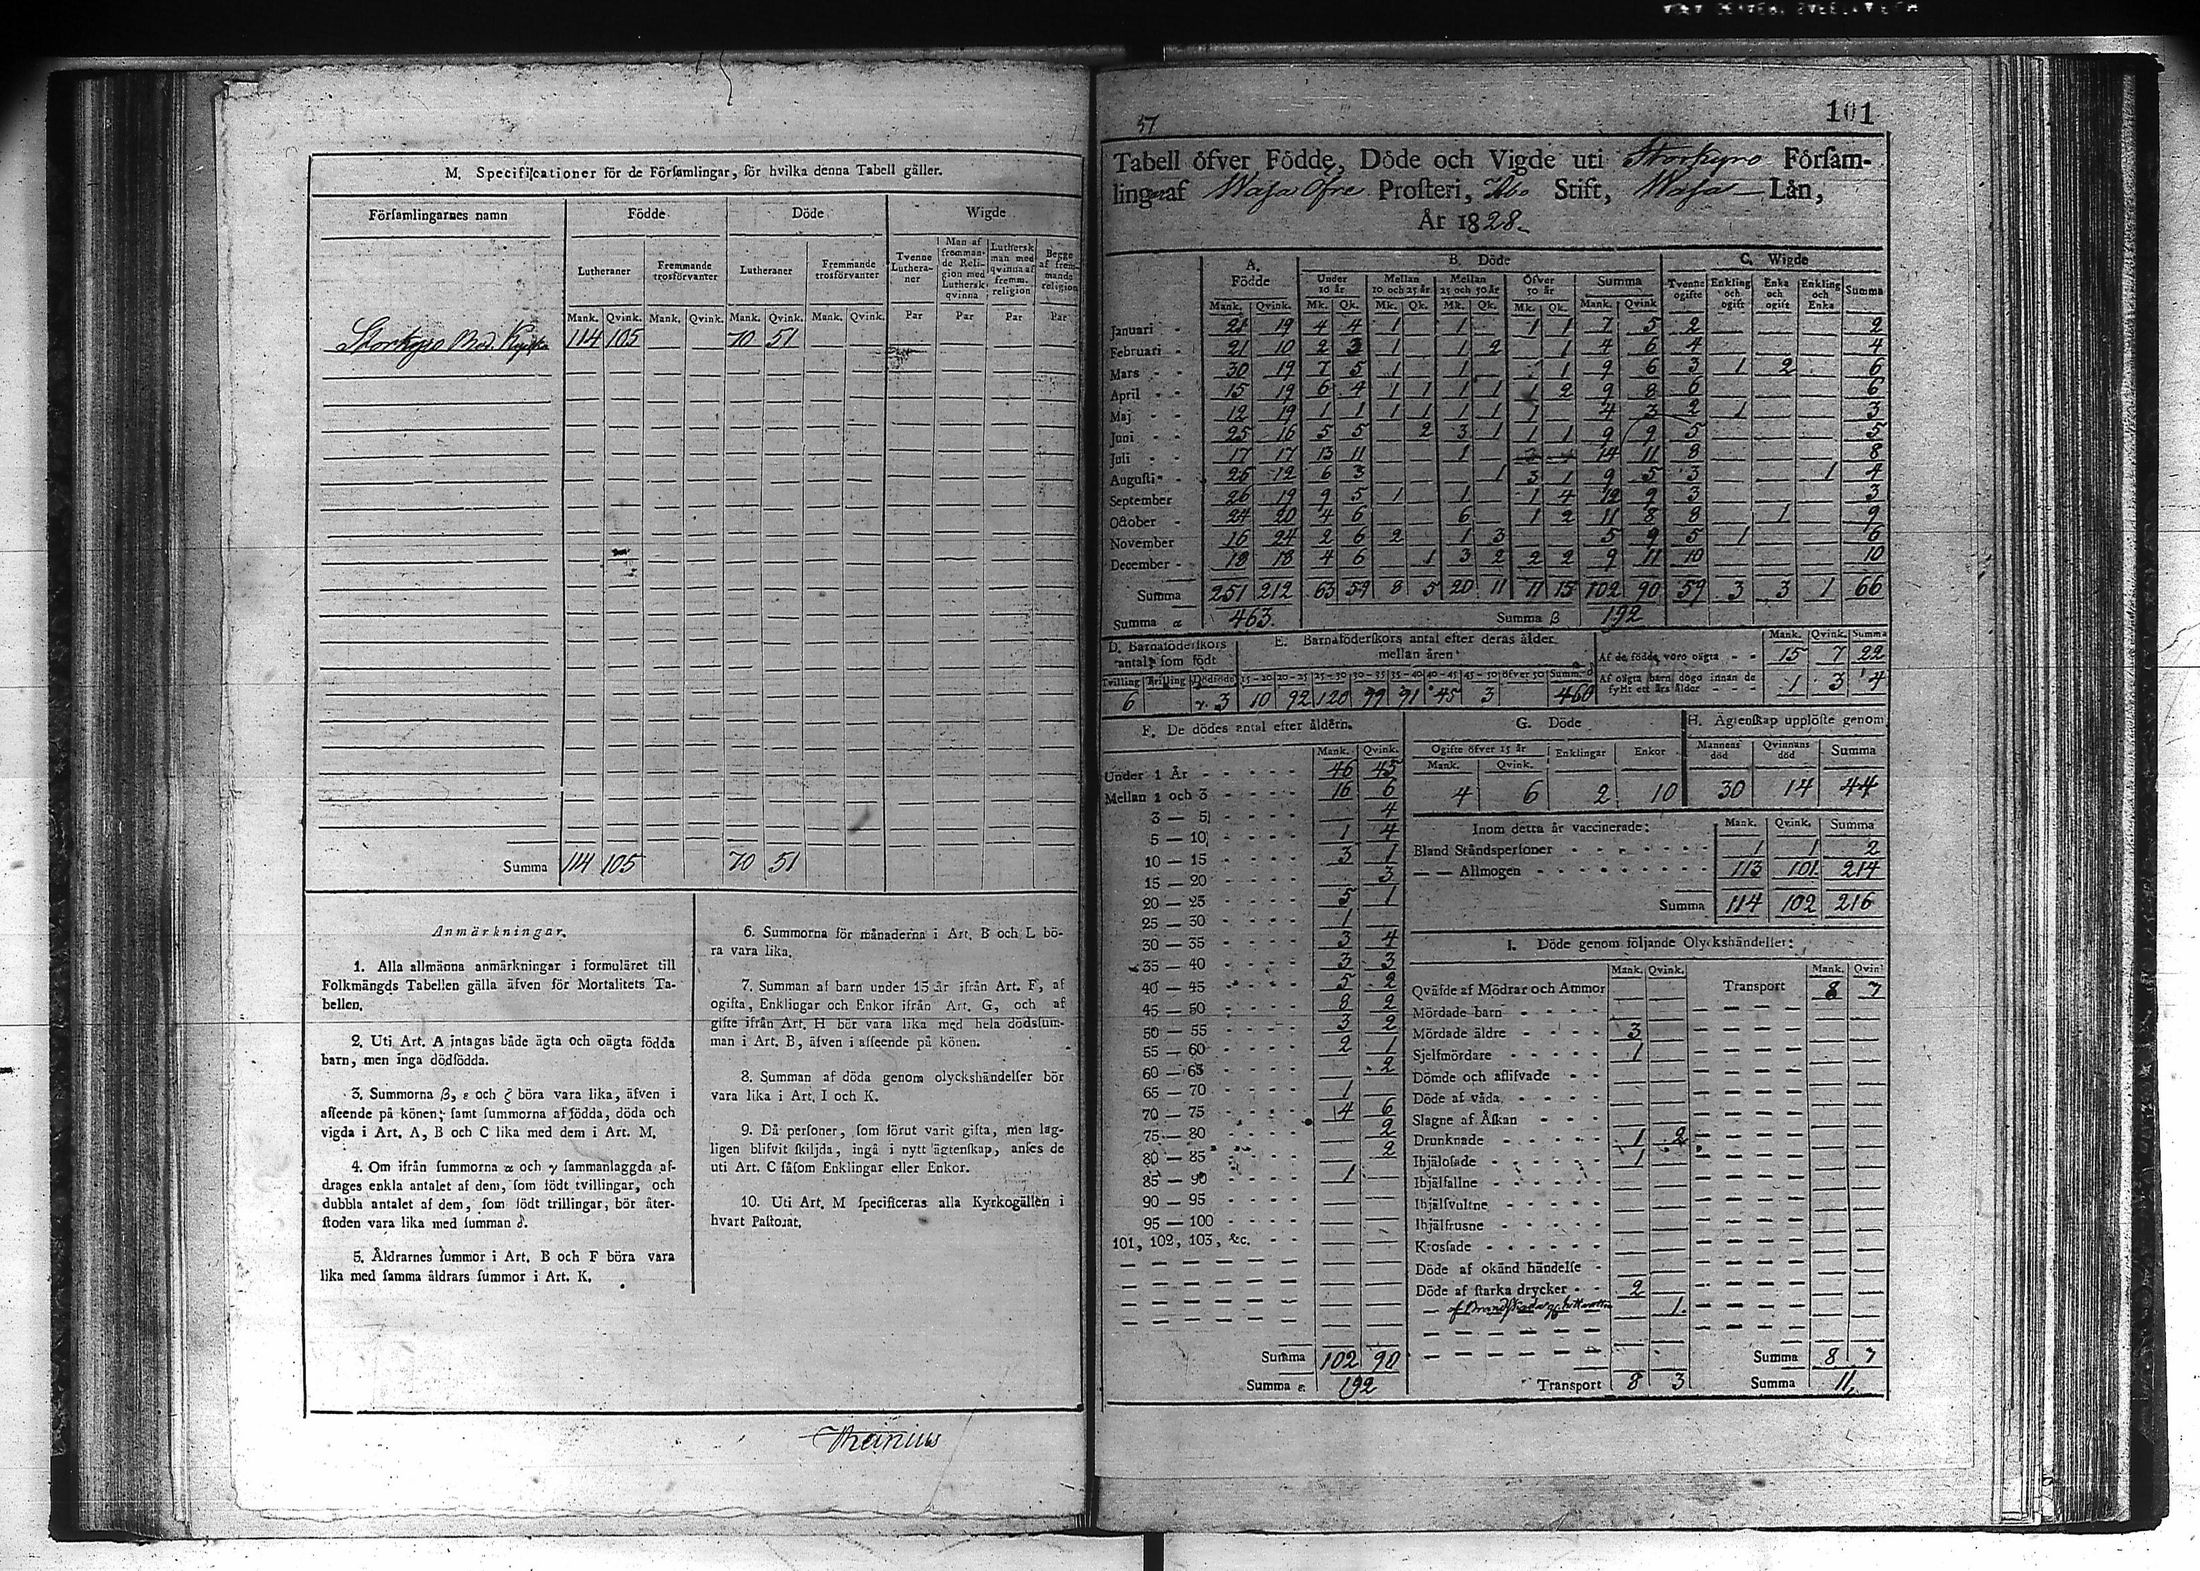 M. Specificationer för de Församlingar, för hvilka denna Tabell gäller.
Församlingarnes namn | Födde | Döde | Wigde
Lutheraner | Fremmande trosförvanter | Lutheraner | Fremmande trosförvanter | Tvenne Lutheraner | Man af fremmande Religion med Luthersk qvinna | Luthersk man med qvinna af fremm. religion | Begge af fremmande religion
Mank. Qvink. Mank. Qvink. Mank. Qvink. Mank. Qvink. Par Par Par Par
Storkyro 114 105 70 51
Summa 114 105 70 51
Anmärkningar.
1. Alla allmänna anmärkningar i formuläret till
Folkmängds Tabellen gälla äfven för Mortalitets Ta-
bellen.
2. Uti Art. A intagas både ägta och oägta födda
barn, men inga dödfödda.
3. Summorna β, ε och ζ böra vara lika, äfven i
afseende på könen; samt summorna af födda, döda och
vigda i Art. A, B och C lika med dem i Art. M.
4. Om ifrån summorna α och γ sammanlaggda af-
drages enkla antalet af dem, som födt tvillingar, och
dubbla antalet af dem, som födt trillingar, bör åter-
stoden vara lika med summan δ.
5. Åldrarnes summor i Art. B och F böra vara
lika med samma åldrars summor i Art. K.
6. Summorna för månaderna i Art. B och L bö-
ra vara lika.
7. Summan af barn under 15 år ifrån Art. F, af
ogifta, Enklingar och Enkor ifrån Art. G, och af
gifte ifrån Art. H bör vara lika med hela dödssum-
man i Art. B, äfven i afseende på könen.
8. Summan af döda genom olyckshändelser bör
vara lika i Art. I och K.
9. Då personer, som förut varit gifta, men lag-
ligen blifvit skiljda, ingå i nytt ägtenskap, anses de
uti Art. C såsom Enklingar eller Enkor.
10. Uti Art. M specificeras alla Kyrkogällen i
hvart Pastorat.
101
57
Tabell öfver Födde, Döde och Vigde uti Storkyro Försam-
ling af Wasa Öfre Prosteri, Åbo Stift, Wasa Län,
År 1828.
A. Födde | B. Döde | C. Wigde
Under 10 år | Mellan 10 och 25 år | Mellan 25 och 50 år | Öfver 50 år | Summa | Tvenne ogifte | Enkling och ogift | Enka och ogift | Enkling och Enka | Summa
Mank. Qvink. Mk. Qk. Mk. Qk. Mk. Qk. Mk. Qk. Mank. Qvink
Januari 21 19 4 4 1 1 1 1 7 5 2 2
Februari 21 10 2 3 1 1 2 1 4 6 4 4
Mars 30 19 7 5 1 1 1 9 6 3 1 2 6
April 15 19 6 4 1 1 1 1 1 2 9 8 6 6
Maj 12 19 1 1 1 1 1 1 1 4 3 2 1 3
Juni 25 16 5 5 2 3 1 1 1 9 9 5 5
Juli 17 17 13 11 1 14 11 8 8
Augusti 26 12 6 3 1 3 1 9 5 3 1 4
September 26 19 9 5 1 1 1 4 12 9 3 3
October 24 20 4 6 6 1 2 11 8 8 1 9
November 16 24 2 6 2 1 3 5 9 5 1 6
December 18 18 4 6 1 3 2 2 2 9 11 10 10
Summa 251 212 63 59 8 5 20 11 11 15 102 90 59 3 3 1 66
Summa α 463. Summa β 192
D. Barnaföderskors antal, som födt | E. Barnaföderskors antal efter deras ålder mellan åren
Tvilling Trilling Dödföde 15-20 20-25 25-30 30-35 35-40 40-45 45-50 öfver 50 Summa δ
6 3 10 92 120 99 91 45 3 460
Mank. Qvink. Summa
Af de födde voro oägta 15 7 22
Af oägta barn dogo innan de fyllt ett års ålder 1 3 4
F. De dödes antal efter åldern.
Mank. Qvink.
Under 1 År 46 45
Mellan 1 och 3 16 6
3 — 5 4
5 — 10 1 4
10 — 15 3 1
15 — 20 3
20 — 25 5 1
25 — 30 1
30 — 35 3 4
35 — 40 3 3
40 — 45 5 2
45 — 50 8 2
50 — 55 3 2
55 — 60 2 1
60 — 65 2
65 — 70 1
70 — 75 4 6
75 — 80 2
80 — 85 2
85 — 90 1
90 — 95
95 — 100
101, 102, 103, &c.
Summa 102 90
Summa ε 192
G. Döde
Ogifte öfver 15 år | Enklingar | Enkor
Mank. Qvink.
4 6 2 10
H. Ägtenskap upplöste genom
Mannens död | Qvinnans död | Summa
30 14 44
Inom detta år vaccinerade: Mank. Qvink. Summa
Bland Ståndspersoner 1 1 2
— — Allmogen 113 101 214
Summa 114 102 216
I. Döde genom följande Olyckshändelser:
Mank. Qvink. Mank. Qvin
Qväfde af Mödrar och Ammor Transport 8 7
Mördade barn
Mördade äldre 3
Sjelfmördare 1
Dömde och aflifvade
Döde af våda
Slagne af Åskan
Drunknade 1 2
Ihjälosade 1
Ihjälfallne
Ihjälsvultne
Ihjälfrusne
Krossade
Döde af okänd händelse
Döde af starka drycker 2
1.
Summa 8 7
Transport 8 3 Summa 11